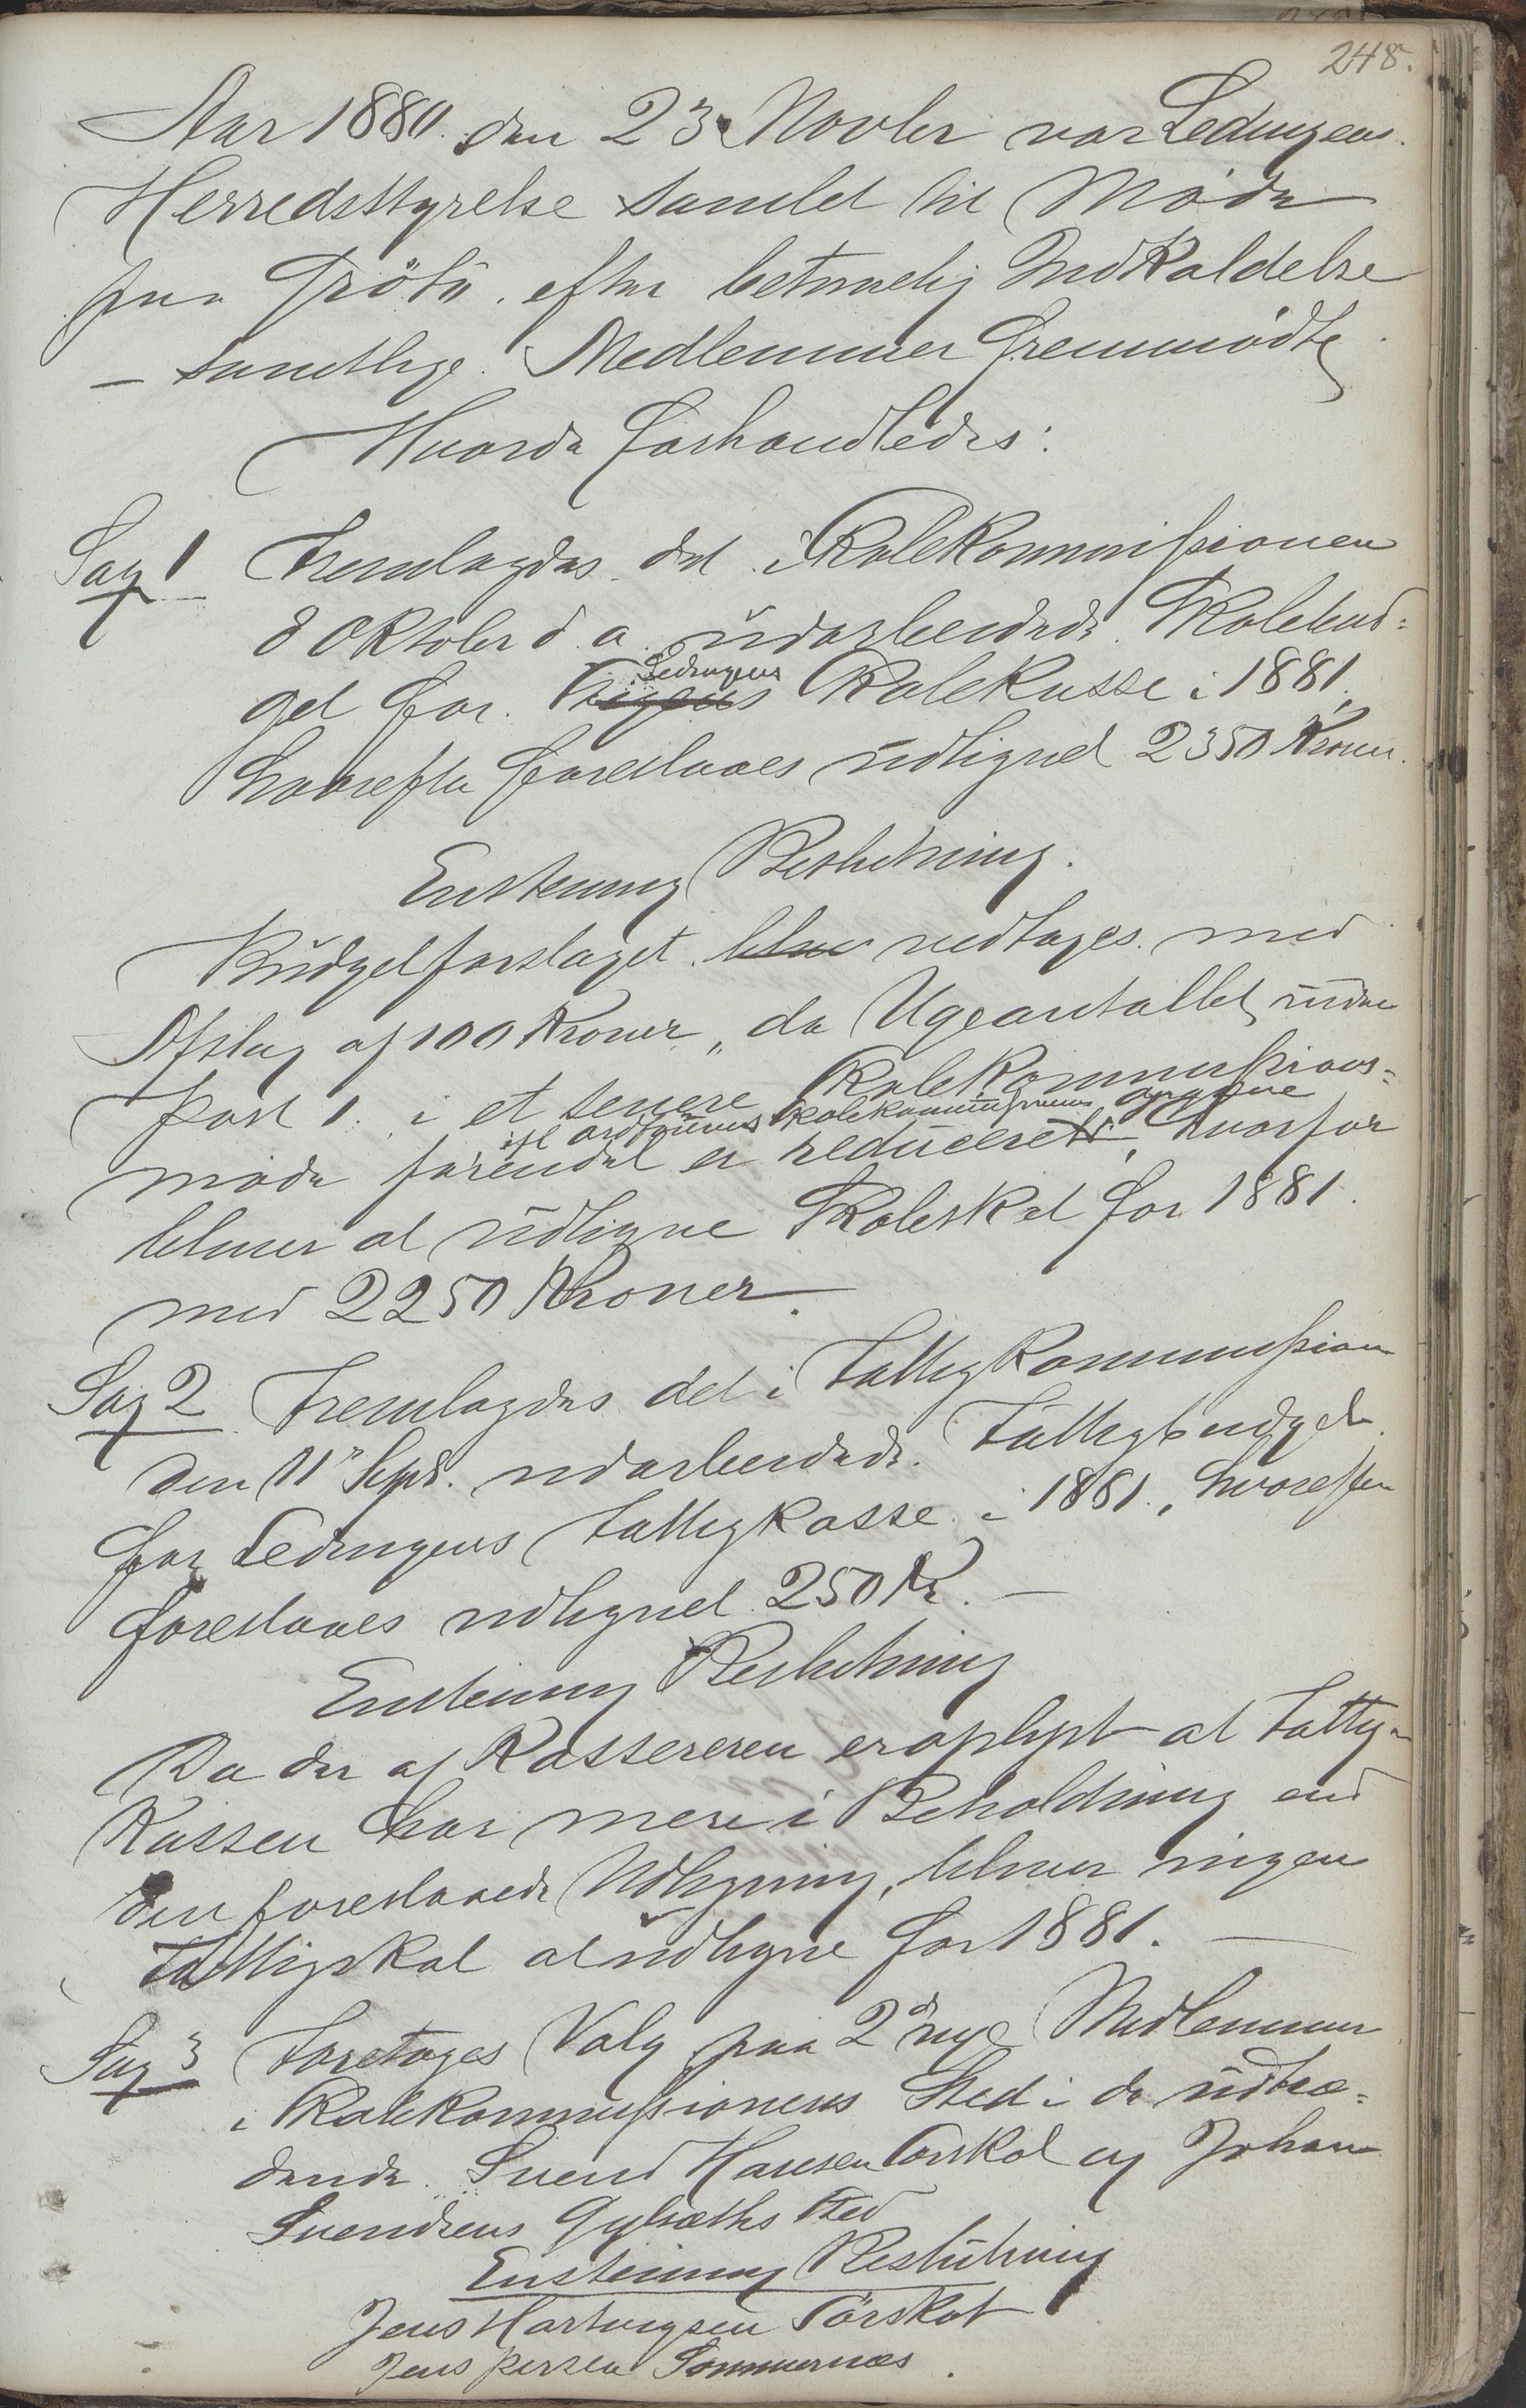 248.
Aar 1880. den 23 Novbr var Ledingens
Herredsstyrelse samlet til Møde
paa Grötö. efter betimelig Indkaldelse
– samtlige Medlemmer fremmødte
Hvorda forhandledes:
Sag 1 Fremlagdes det i Skolekommissionen
8 Oktober d. a. udarbeidede Skolebud=
get for Ledingens Skolekasse i 1881.
hvorefter foreslaaes udlignet 2350 Kroner.
Enstemmig Beslutning.
Budgetforslaget blev vedtages med
Afslag af 100 Kroner, da Ugeantallet under
Post 1. i et senere Skolekommissions=
ifl ordförerens skolekommissionens opgave
møde forendet er reduceret, hvorfor
bliver at udligne Skoleskat for 1881.
med 2250 Kroner.
Sag 2 Fremlagdes det i Fattigkommission
den 11te Septr. udarbeidede Fattigbudget
for Ledingens Fattigkasse i 1881., hvorefter
foreslaaes udlignet 250 Kr. –
Enstemmig Beslutning
Da der af Kassereren er oplyst at Fattig-
Kassen har mere i Beholdning end
den foreslaaede Udligning, bliver ingen
Fattigskat at udligne for 1881. –
Sag 3 Foretoges Valg paa 2de nye Medlemmer
i Skolekommissionens Sted i de udtræ=
dende Svend Hansen Torskat og Johan
Svendsens Sted
Enstemmig Beslutning
Jens Hartvigsen Tørskat
Jens Persen Sommernæs.